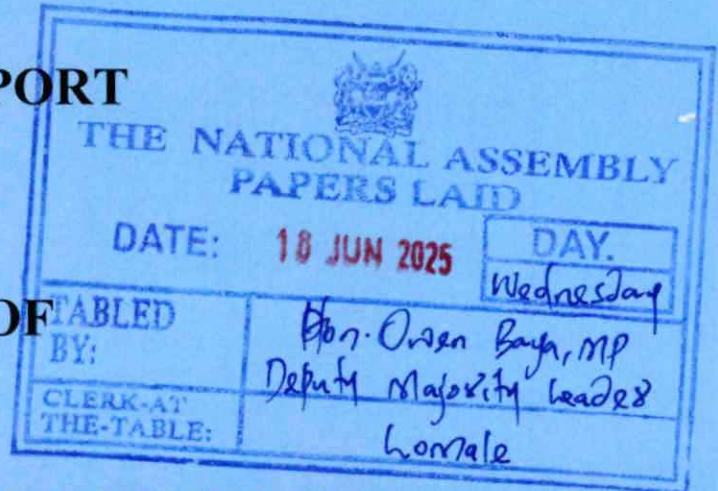 PORT
THE NATIONAL ASSEMBLY
PAPERS LAID
DATE: 18 JUN 2025 DAY.
Wednesday
OF
TABLED BY: Hon. Owen Baya, MP
Deputy Majority Leader
CLERK-AT THE-TABLE: